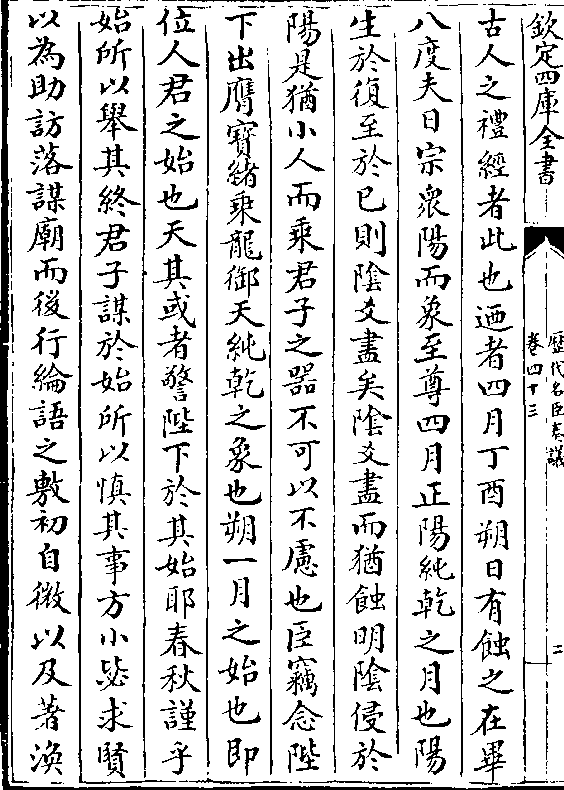 欽定四庫全書
歷代名臣奏議
卷四十三
二
古人之禮經者此也迺者四月丁酉朔日有蝕之在畢
八度夫日宗衆陽而象至尊四月正陽純乾之月也陽
生於復至於巳則陰爻盡矣陰爻盡而猶蝕明陰侵於
陽是猶小人而乘君子之器不可以不慮也臣竊念陛
下出膺寶緒乘龍御天純乾之象也朔一月之始也即
位人君之始也天其或者警陛下於其始耶春秋謹乎
始所以舉其終君子謀於始所以慎其事方小毖求賢
以為助訪落謀廟而後行綸語之敷初自微以及著渙